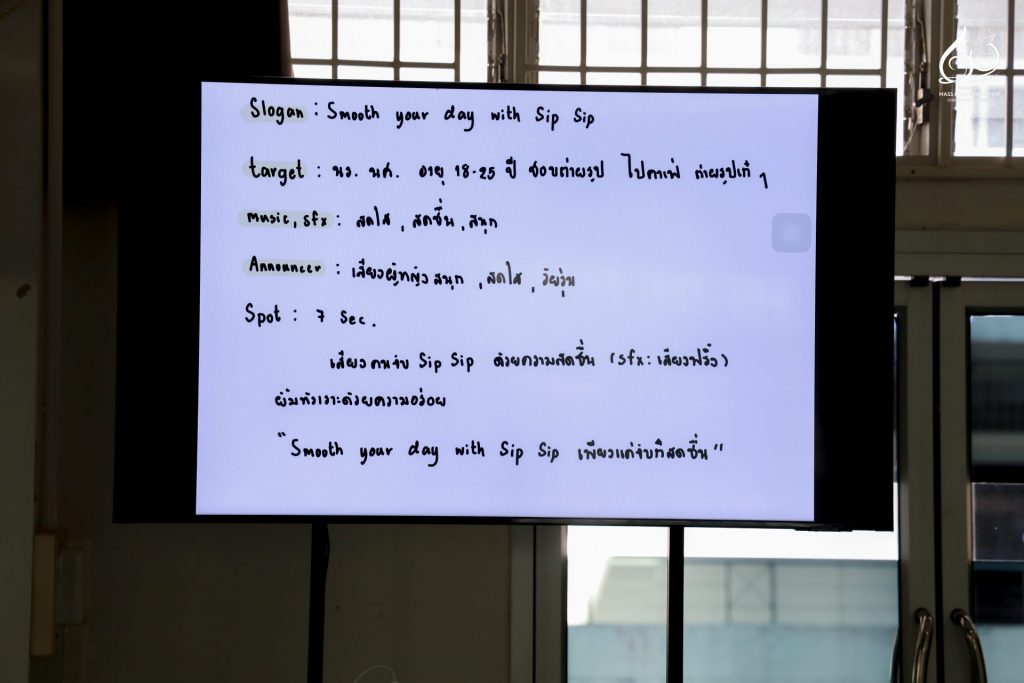 Slogan : Smooth your day with Sip Sip
target : นร. นศ. อายุ 18-25 ปี ชอบถ่ายรูป ไปคาเฟ่ ถ่ายรูปเก๋ ๆ
music, sfx : สดใส , สดชื่น , สนุก
Announcer : เสียงผู้หญิง สนุก , สดใส , วัยรุ่น
Spot : 7 Sec.
เสียงคนจิบ Sip Sip ด้วยความสดชื่น (sfx : เสียงฟริ้ง)
ยิ้มหัวเราะด้วยความอร่อย
"Smooth your day with Sip Sip เพียงแค่จิบก็สดชื่น"